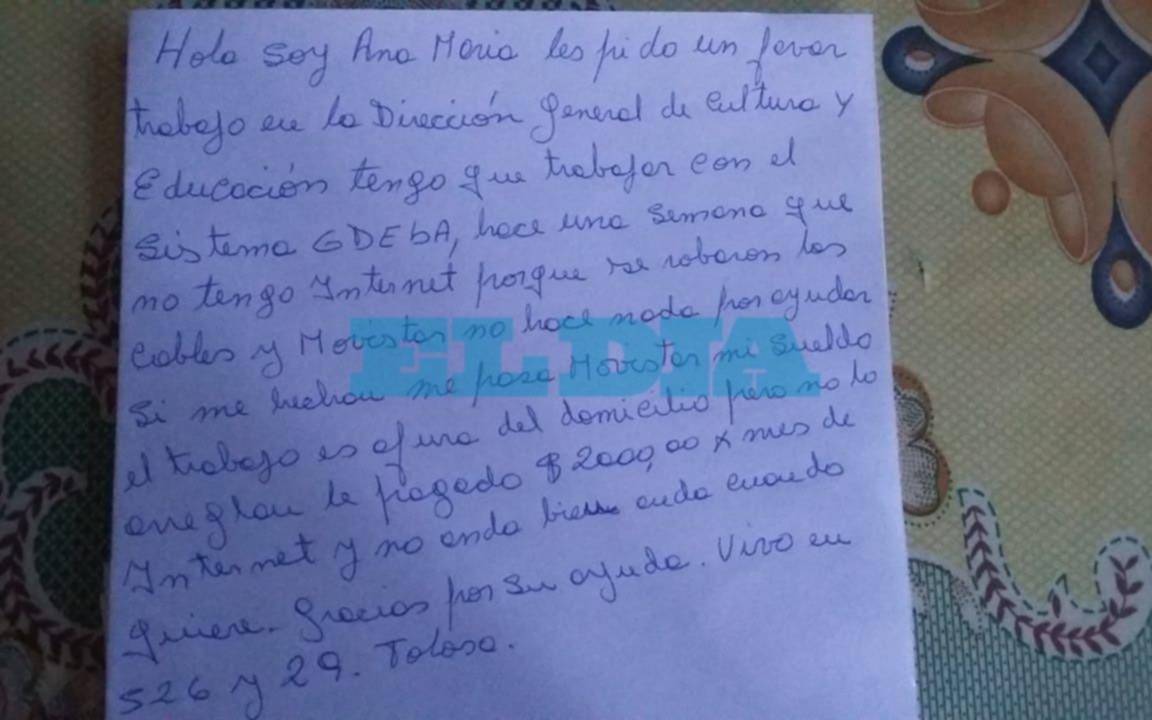 Hola soy Ana Maria les pido un favor
trabajo en la Dirección general de Cultura y
Educación tengo que trabajar con el
sistema GDEbA, hace una semana que
no tengo Internet porque se robaron los
cables y Movistar no hace nada por ayudar
si me hechan me pasa Movistar mi sueldo
el trabajo es afuera del domicilio pero no lo
arreglan he pagado $2000,00 x mes de
Internet y no anda bien anda cuando
quiere. Gracias por su ayuda. Vivo en
526 y 29. Tolosa.
EL DIA